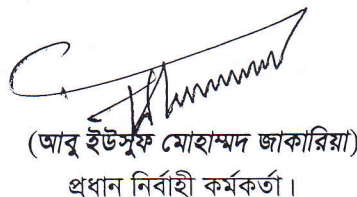 (আবু ইউসুফ মোহাম্মদ জাকারিয়া)
প্রধান নির্বাহী কর্মকর্তা।